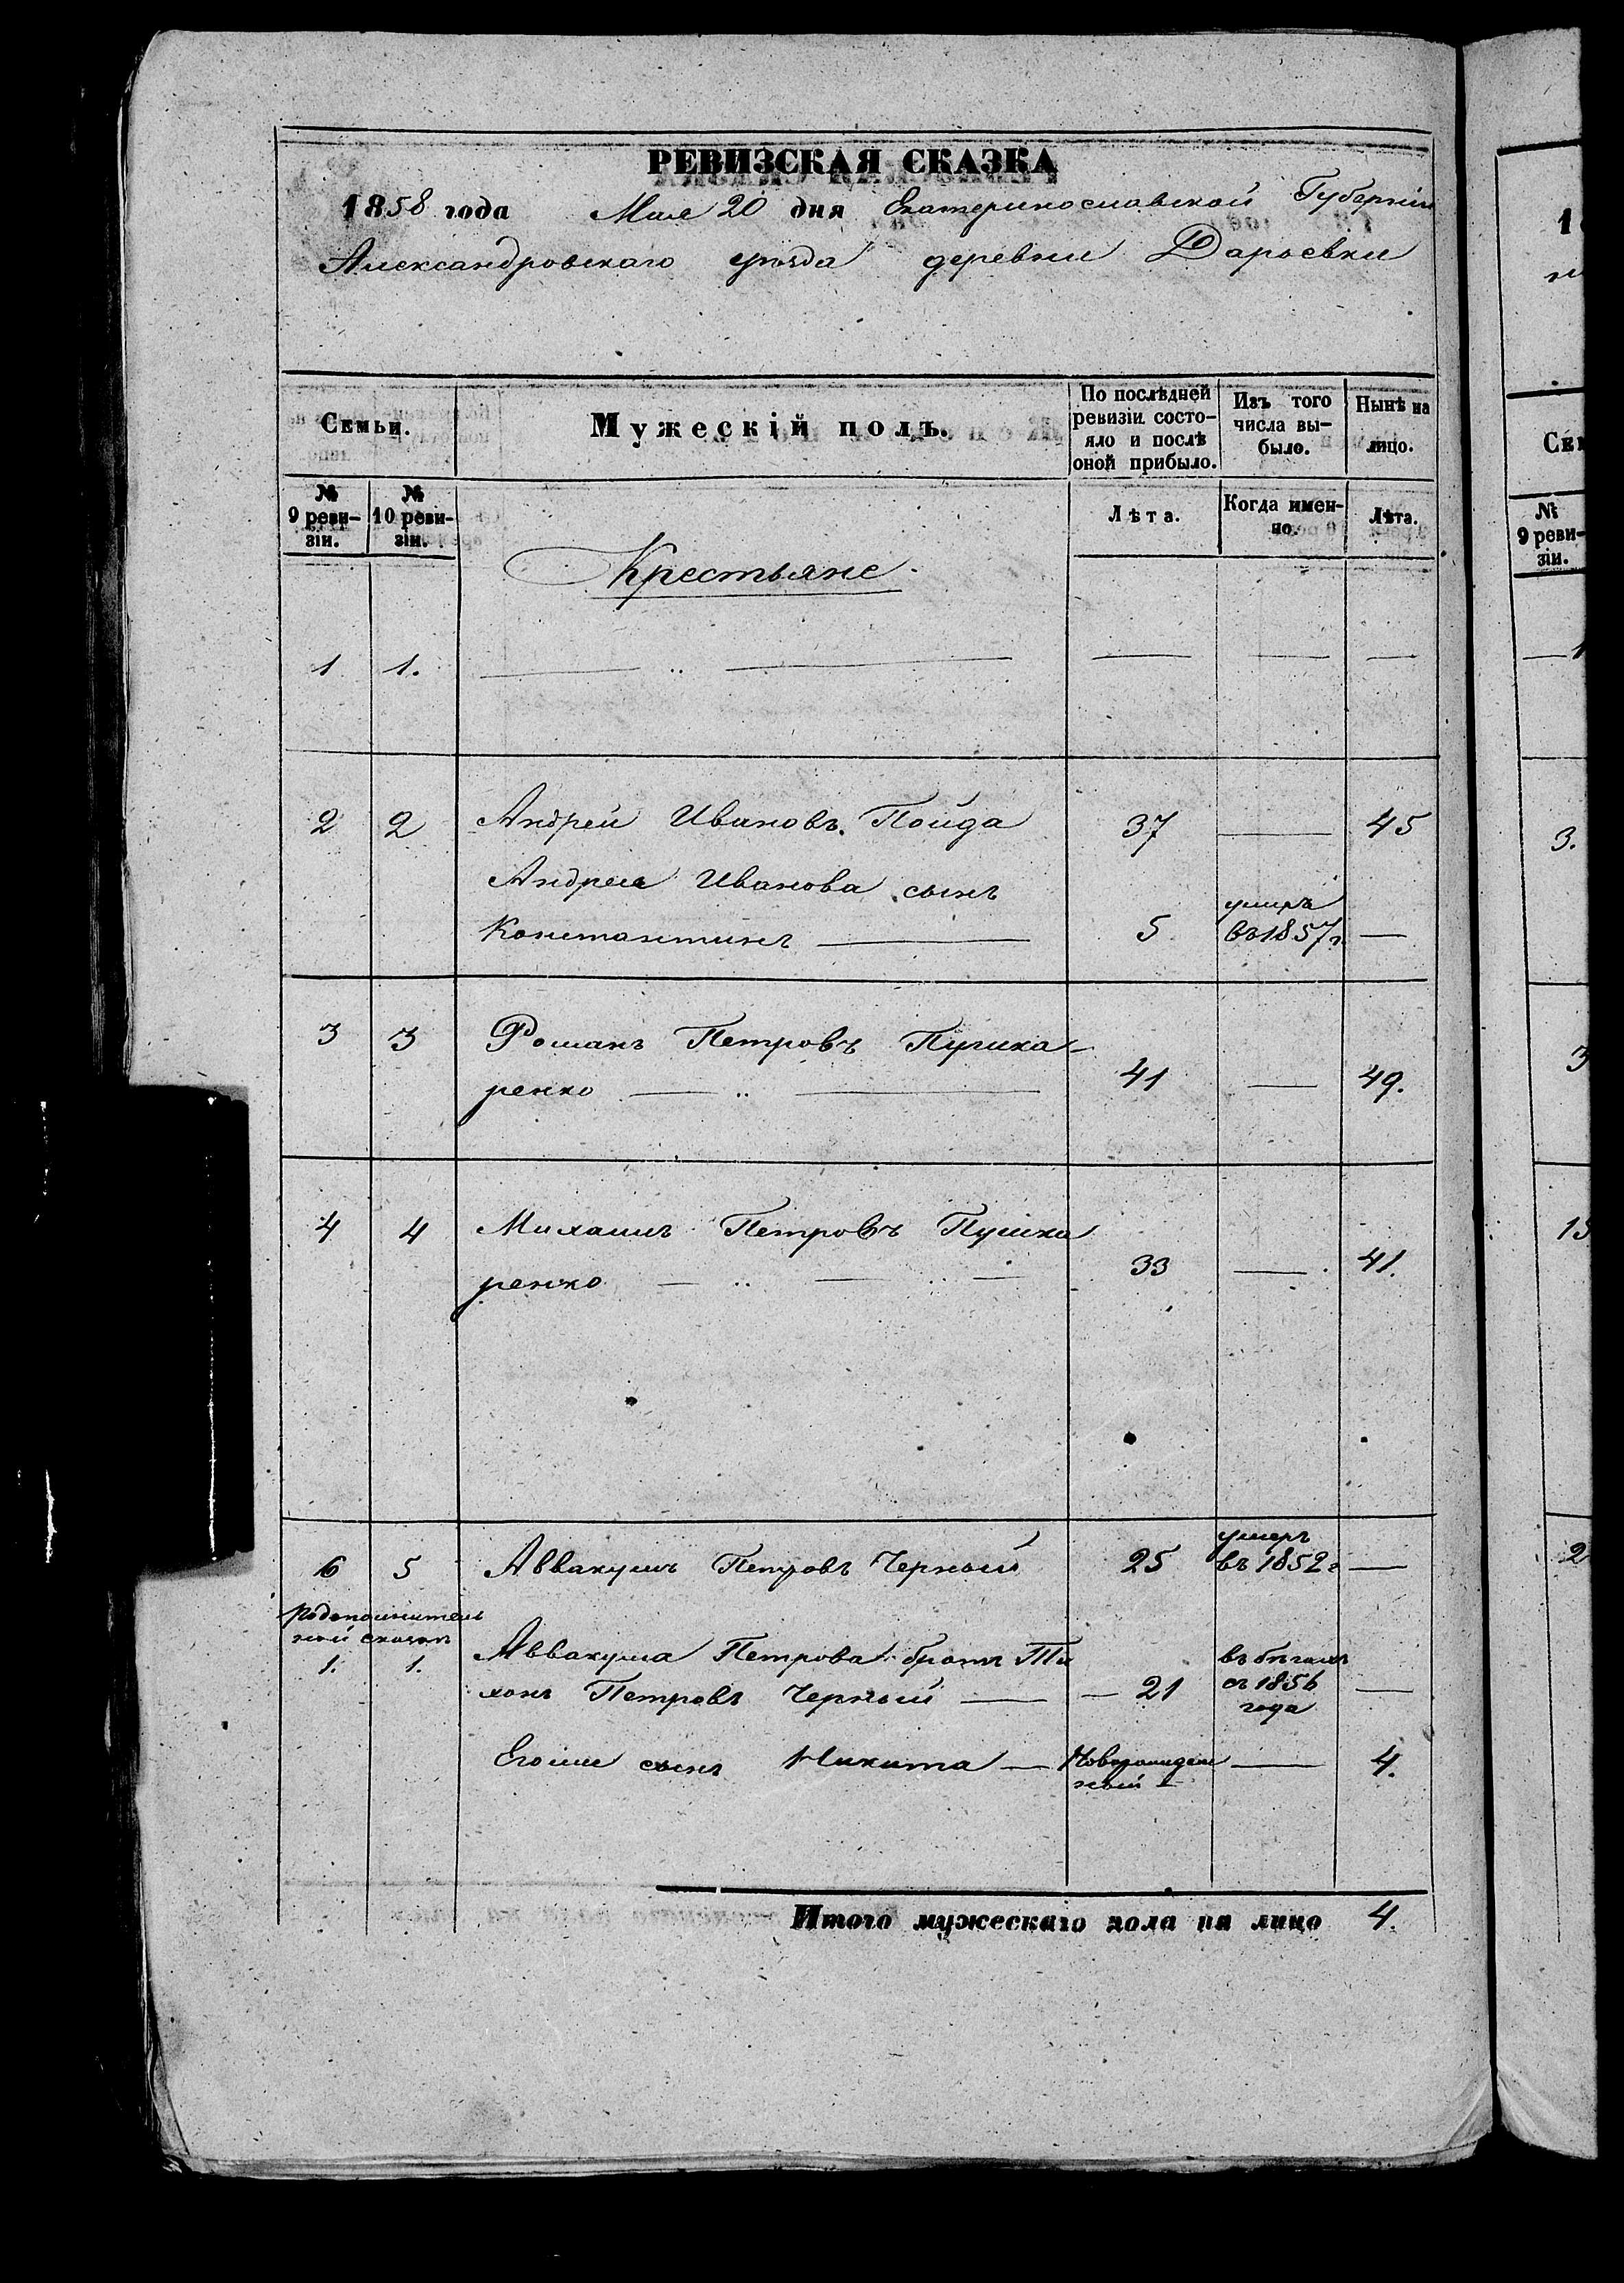 РЕВИЗСКАЯ СКАЗКА
1858 года Мая 20 дня Екатеринославской Губерніи
Александровскаго уѣзда деревни Дарьевки
Семьи.
Мужескій полъ.
По послѣдней ревизіи состо-
яло и послѣ оной прибыло.
Изъ того числа вы-
было.
Нынѣ на лицо.
№ 9 реви-
зіи.
№ 10 реви-
зіи.
Лѣта.
Когда имен-
но.
Лѣта.
Крестьяне
1 1.
2 2 Андрей Ивановъ Пойда 37 45
Андрея Иванова сынъ
умеръ
Константинъ 5 въ 1857г. —
3 3 Романъ Петровъ Пушка-
ренко 41 — 49.
4 4 Михаилъ Петровъ Пушка
ренко 33 — 41.
умеръ
6 5 Аввакумъ Петровъ Черный 25 въ 1852г —
1. 1. Аввакума Петрова братъ Ти
хонъ Петровъ Черный — 21 въ бѣгахъ
съ 1856
года
Егоже сынъ Никита — Новорожден
ный — 4.
Итого мужескаго пола на лицо 4.
1
Се
№
9 реви-
зіи.
1
3.
3
2